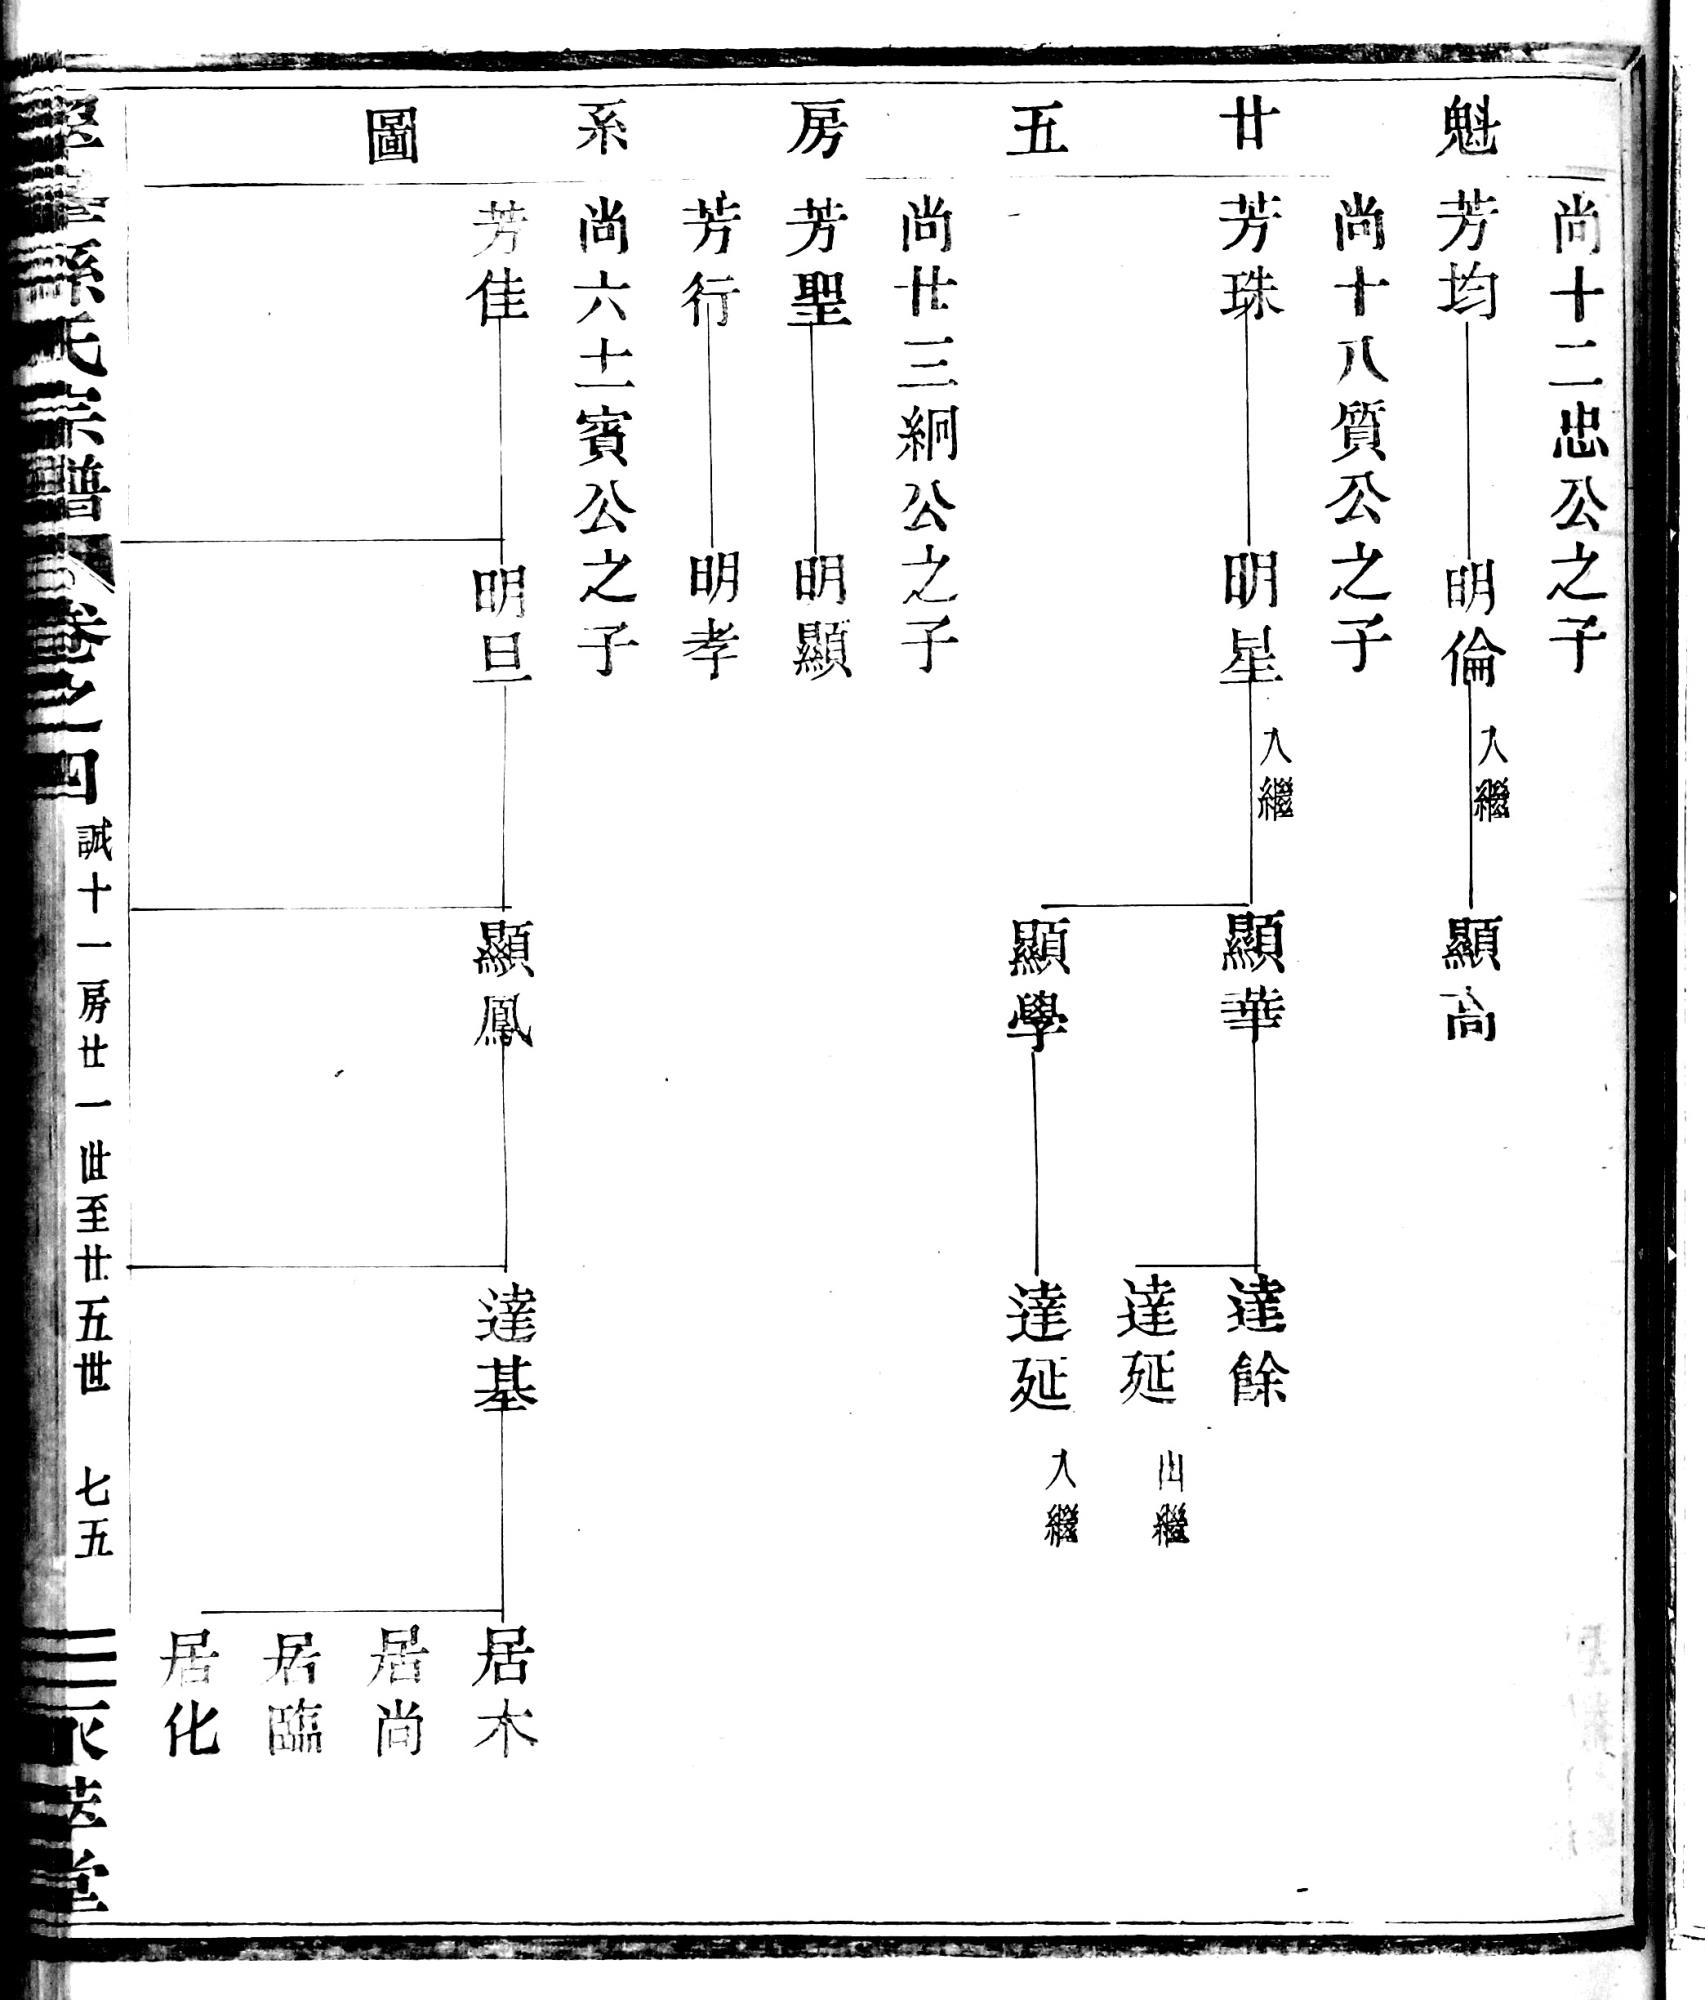 魁廿五房系圖
尚十二忠公之子
芳均
明倫
入繼
顯高
尚十八質公之子
芳珠
明星
入繼
顯華
達餘
達延
出繼
顯學
達延
入繼
尚廿三絅公之子
芳聖
明顯
芳行
明孝
尚六十一賓公之子
芳佳
明旦
顯鳳
達基
居木
居尚
居臨
居化
孫氏宗譜
卷之四
誠十一房廿一世至廿五世
七五
萃堂